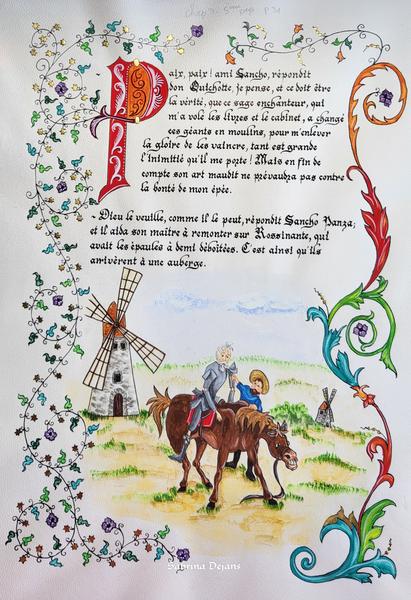 Paix, paix! ami Sancho, répondit
don Quichotte, je pense, et ce doit être
la vérité, que ce sage enchanteur, qui
m'a volé les livres et le cabinet, a changé
ces géants en moulins, pour m'enlever
la gloire de les vaincre, tant est grande
l'inimitié qu'il me porte! Mais en fin de
compte son art maudit ne prévaudra pas contre
la bonté de mon épée.
~ Dieu le veuille, comme il le peut, répondit Sancho Panza;
et il aida son maître à remonter sur Rossinante, qui
avait les épaules à demi déboîtées. C'est ainsi qu'ils
arrivèrent à une auberge.
Sabrina Dejans